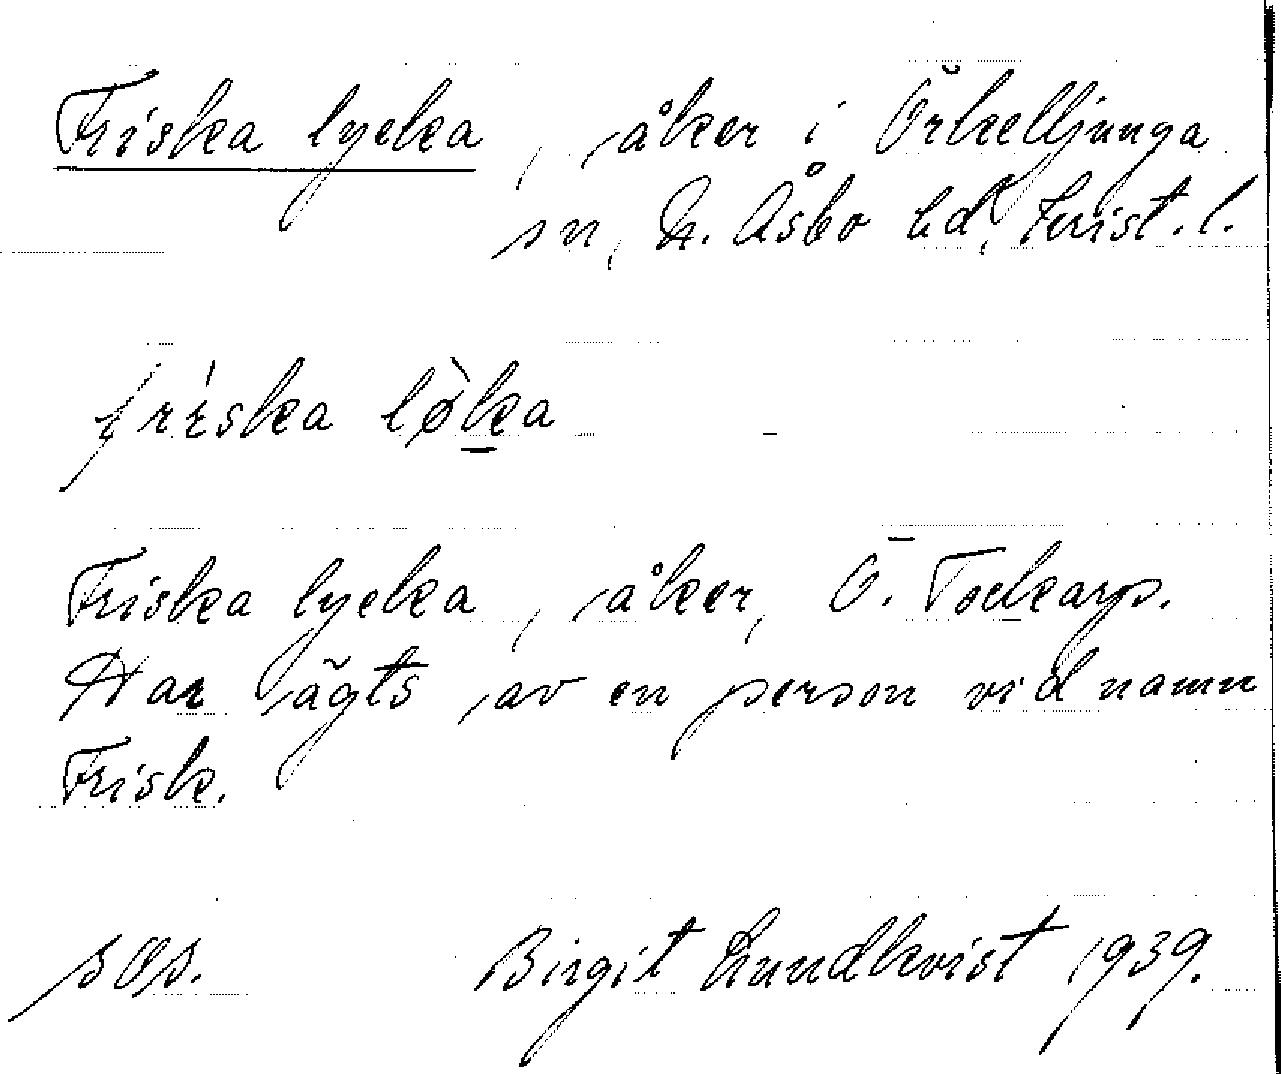 Friska lycka, åker i Örkelljunga
sn, N. Åsbo hd, Krist. l.
friska løka
Friska lycka, åker, Ö. Tockarp.
Har ägts av en person vid namn
Frisk.
Birgit Lundkvist 1939.